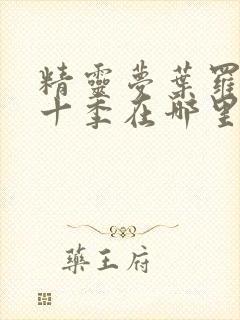 精靈夢葉羅
十季在哪里
藥王府